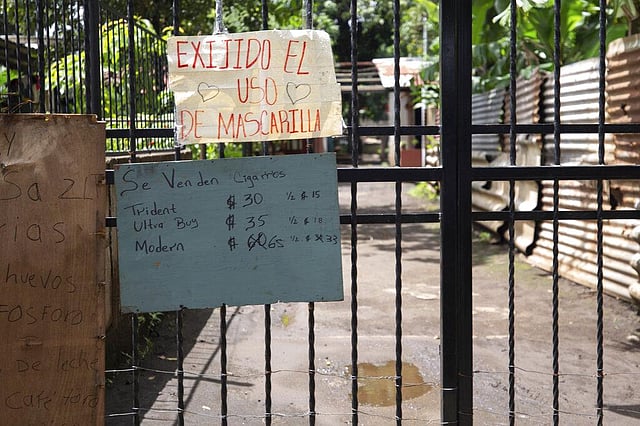 EXIJIDO EL
USO
DE MASCARILLA
Se Venden Cigarros
Trident $ 30 ½ $ 15
Ultra Buy $ 35 ½ $ 18
Modern $ 65 ½ $ 33
y
Sa 2
rias
huevos
FOSFORO
De leche
Café